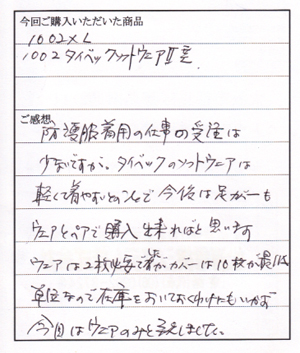 今回ご購入いただいた商品
1002XL
1002タイベックソフトウェアⅡ型
ご感想、
防護服着用の仕事の受注は
少ないですが、タイベックのソフトウェアは
軽くて着やすいとのことで今後は足カバーも
ウェアとペアで購入出来ればと思います
ウェアは2枚必要で足カバーは10枚が最低
単位なので在庫をおいておくわけにもいかず
今回はウェアのみと考えました。